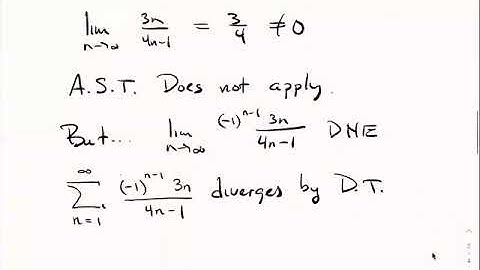 lim n→∞ 3n/(4n-1) = 3/4 ≠ 0
A.S.T. Does not apply.
But... lim n→∞ (-1)^(n-1) 3n/(4n-1) DNE
∑ n=1 ∞ (-1)^(n-1) 3n/(4n-1) diverges by D.T.